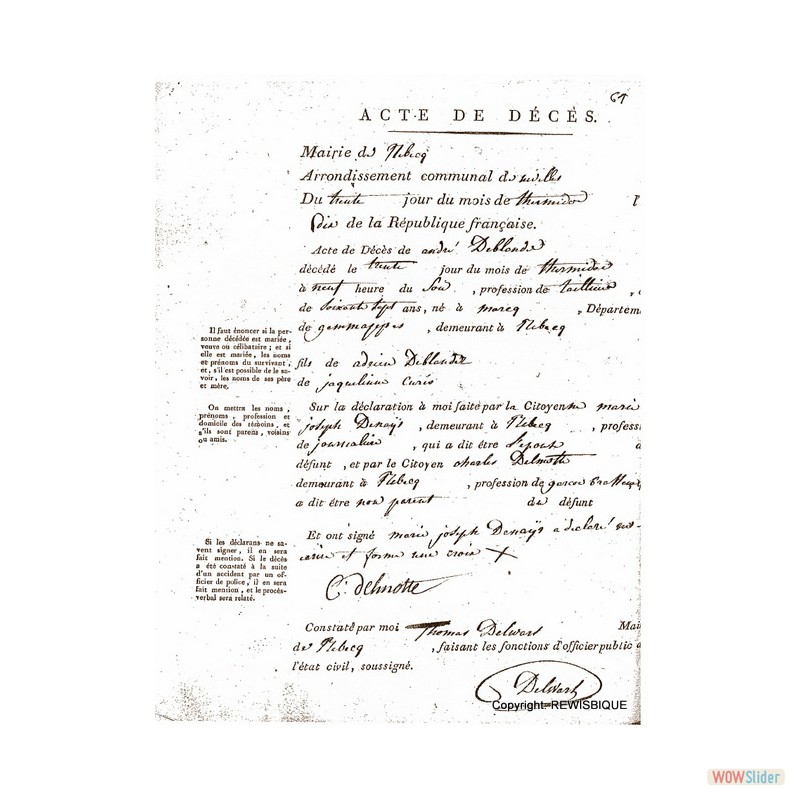 61
ACTE DE DÉCÈS.
Mairie de Flobecq
Arrondissement communal de
Du trente jour du mois de thermidor
dix de la République française.
Acte de Décès de andré Deblander
décédé le trente jour du mois de thermidor
à neuf heure du Soir, profession de tailleur,
de Soixante Sept ans, né à marcq, Départem
de gemmappes, demeurant à Flobecq
Il faut énoncer si la per-
sonne décédée est mariée,
veuve ou célibataire; et si
elle est mariée, les noms
et prénoms du survivant;
et, s'il est possible de le sa-
voir, les noms de ses père
et mère.
fils de adrien Deblander
de jaqueline
On mettra les noms,
prénoms, profession et
domicile des témoins, et
s'ils sont parens, voisins
ou amis.
Sur la déclaration à moi faite par la Citoyenne marie
joseph Denaÿs, demeurant à Flobecq, profess
de journalière, qui a dit être l'epouse d
défunt, et par le Citoyen charles Delmotte
demeurant à Flobecq, profession de garcon
a dit être non parent du défunt
Si les déclarans ne sa-
vent signer, il en sera
fait mention. Si le décès
a été constaté à la suite
d'un accident par un of-
ficier de police, il en sera
fait mention, et le procès-
verbal sera relaté.
Et ont signé marie joseph Denaÿs a declaré
et formé une croix X
C: delmotte
Constaté par moi Thomas Delwart Mai
de Flobecq, faisant les fonctions d'officier public d
l'état civil, soussigné.
Delwart
Copyright-REWISBIQUE
WOWSlider